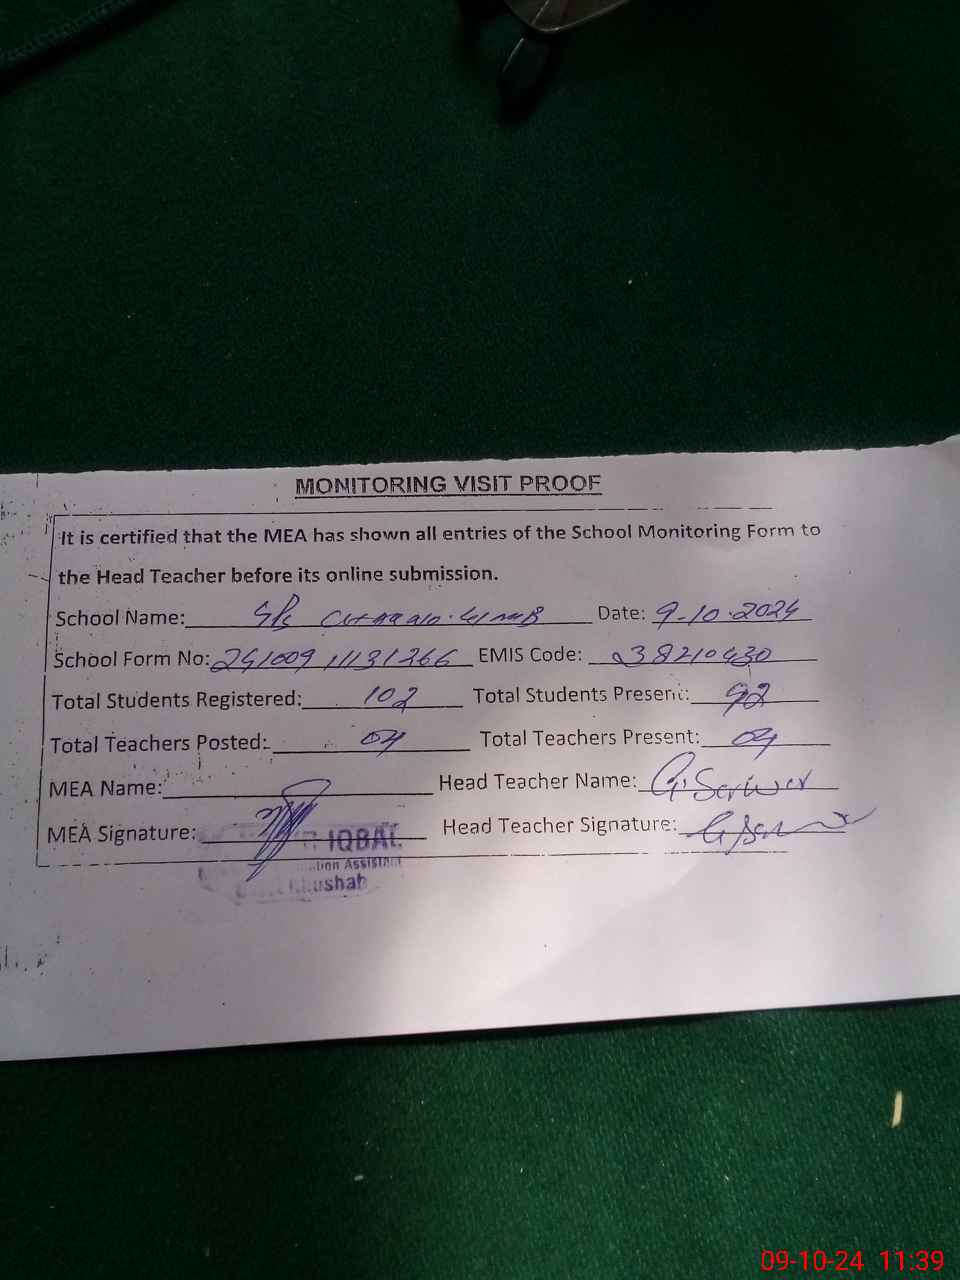 MONITORING VISIT PROOF
It is certified that the MEA has shown all entries of the School Monitoring Form to
the Head Teacher before its online submission.
School Name: Date: 9-10-2024
School Form No: 241009 11131266 EMIS Code: 38210430
Total Students Registered: 102 Total Students Present: 92
Total Teachers Posted: 04 Total Teachers Present: 04
MEA Name: Head Teacher Name: G. Serwer
MEA Signature: Head Teacher Signature:
IQBAL
Assistant
Khushab
09-10-24 11:39